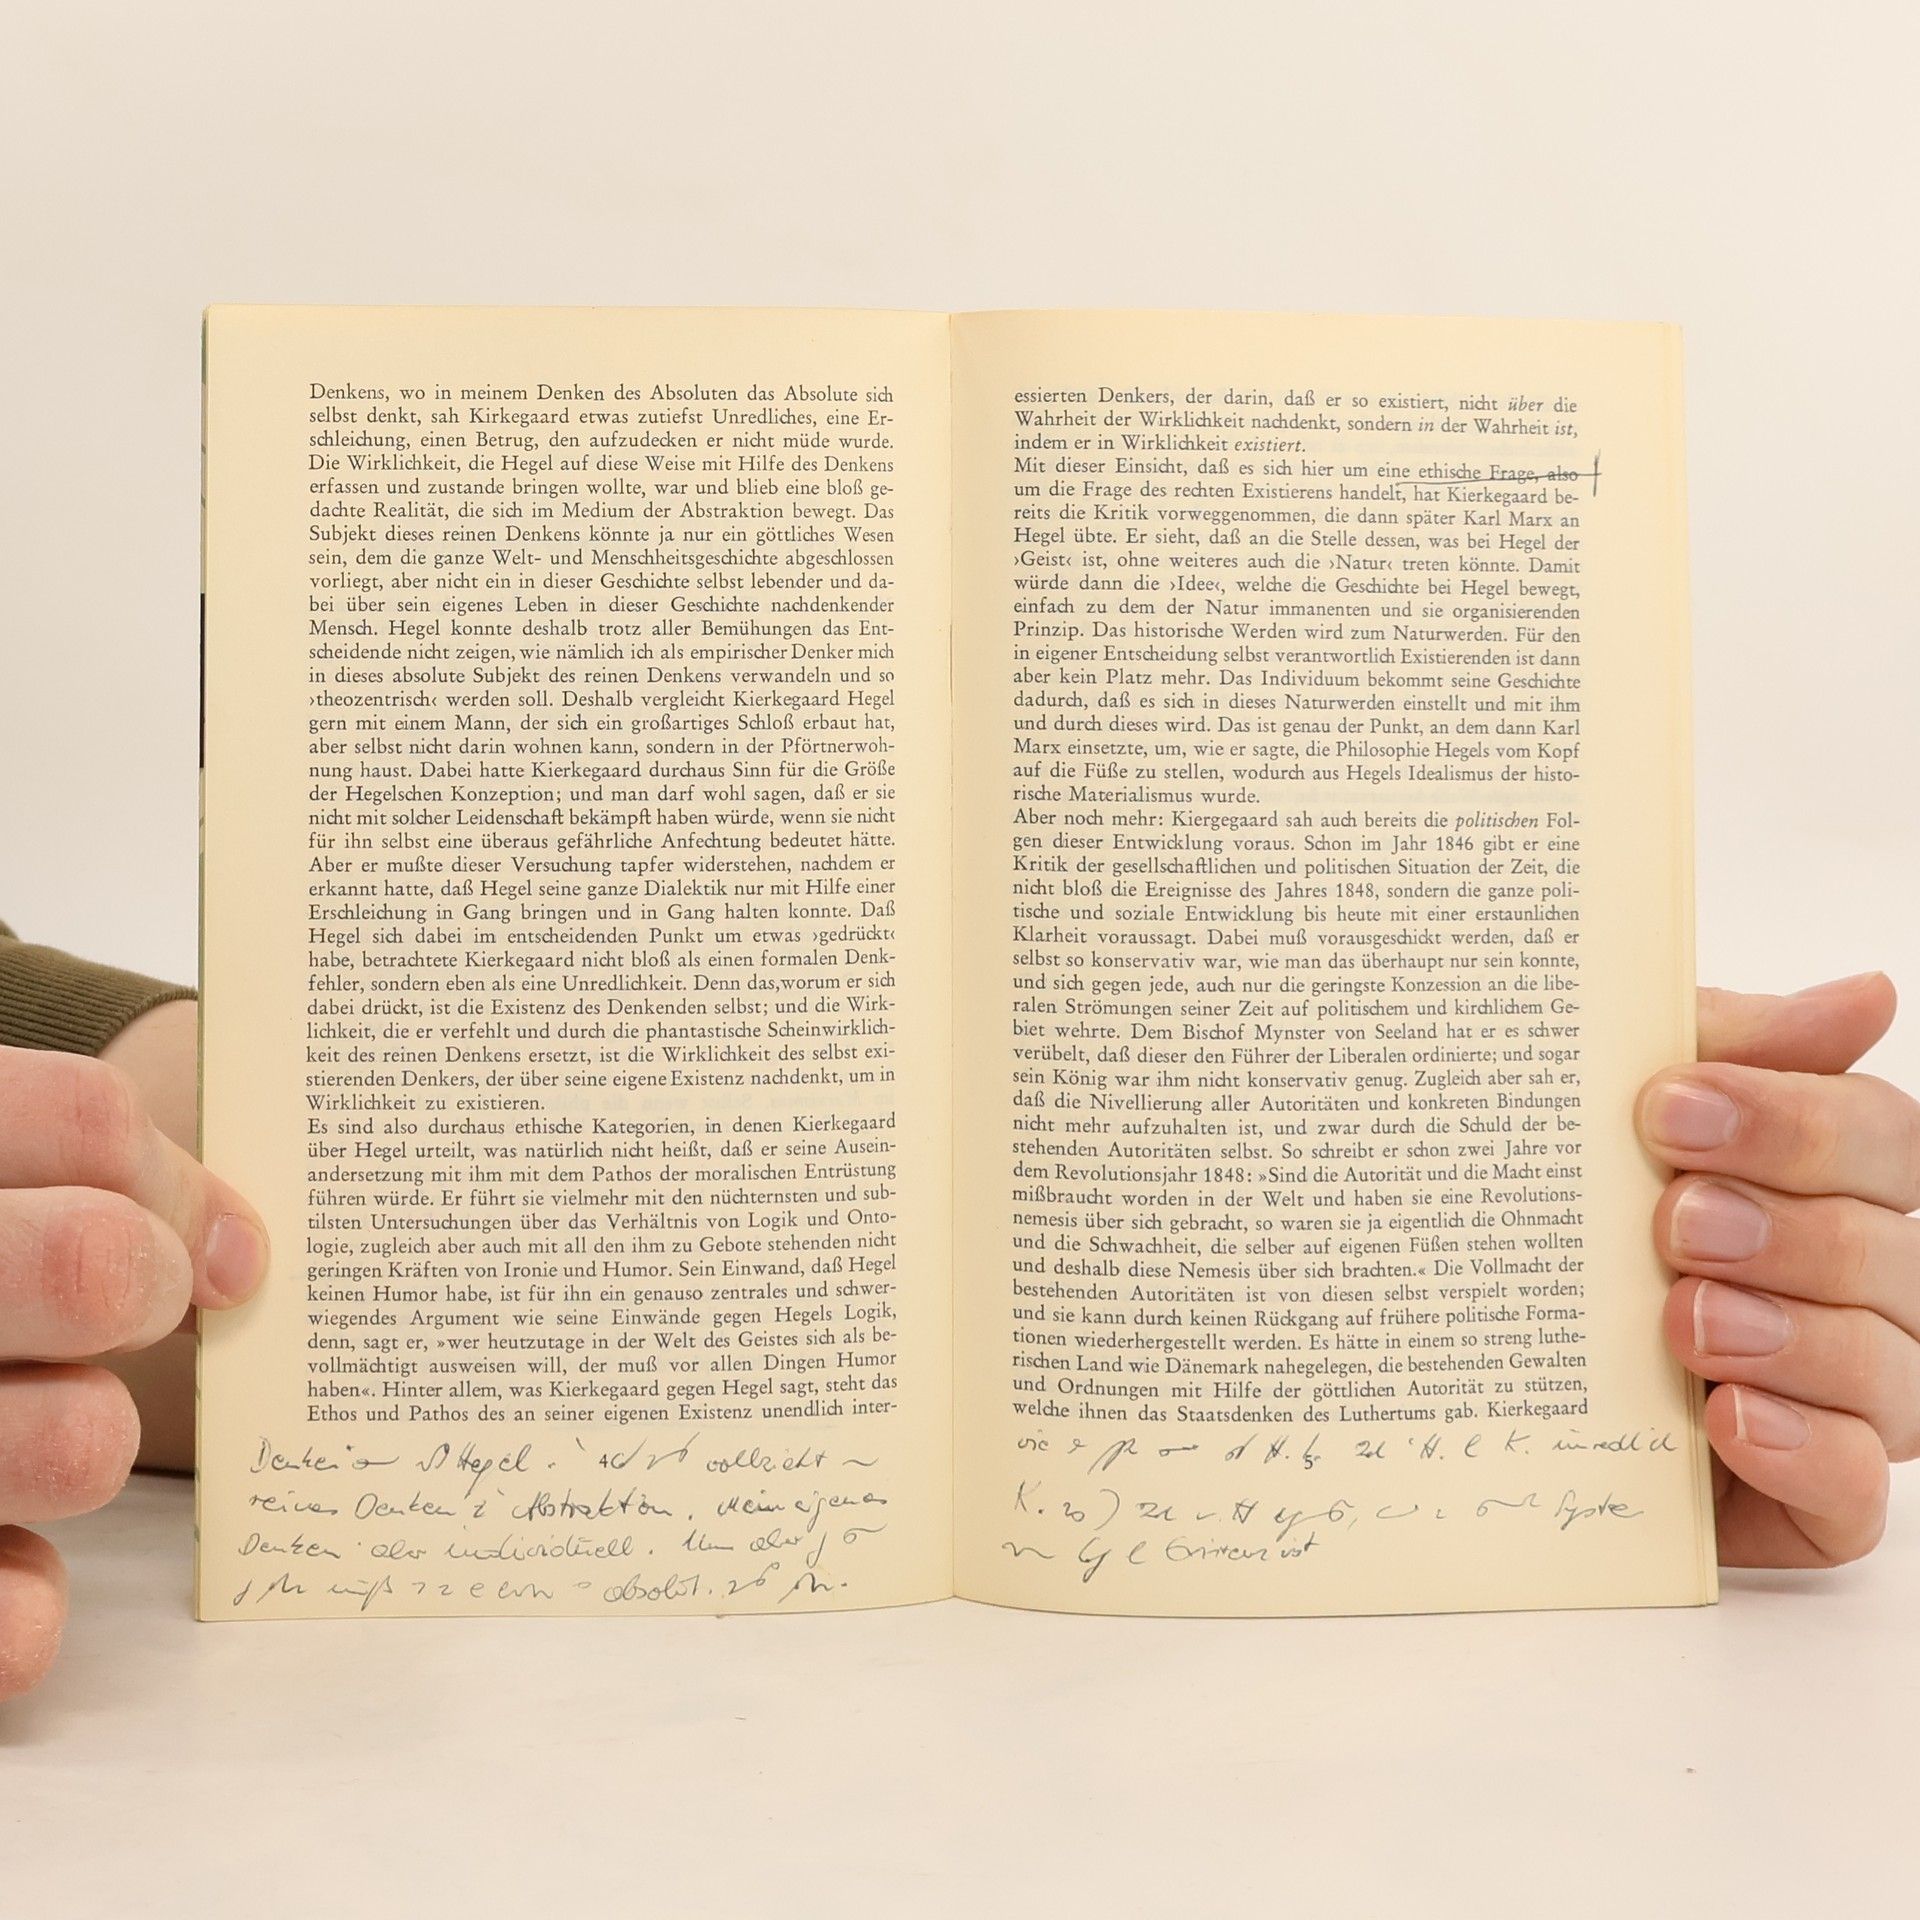 Denkens, wo in meinem Denken des Absoluten das Absolute sich
selbst denkt, sah Kirkegaard etwas zutiefst Unredliches, eine Er-
schleichung, einen Betrug, den aufzudecken er nicht müde wurde.
Die Wirklichkeit, die Hegel auf diese Weise mit Hilfe des Denkens
erfassen und zustande bringen wollte, war und blieb eine bloß ge-
dachte Realität, die sich im Medium der Abstraktion bewegt. Das
Subjekt dieses reinen Denkens könnte ja nur ein göttliches Wesen
sein, dem die ganze Welt- und Menschheitsgeschichte abgeschlossen
vorliegt, aber nicht ein in dieser Geschichte selbst lebender und da-
bei über sein eigenes Leben in dieser Geschichte nachdenkender
Mensch. Hegel konnte deshalb trotz aller Bemühungen das Ent-
scheidende nicht zeigen, wie nämlich ich als empirischer Denker mich
in dieses absolute Subjekt des reinen Denkens verwandeln und so
›theozentrisch‹ werden soll. Deshalb vergleicht Kierkegaard Hegel
gern mit einem Mann, der sich ein großartiges Schloß erbaut hat,
aber selbst nicht darin wohnen kann, sondern in der Pförtnerwoh-
nung haust. Dabei hatte Kierkegaard durchaus Sinn für die Größe
der Hegelschen Konzeption; und man darf wohl sagen, daß er sie
nicht mit solcher Leidenschaft bekämpft haben würde, wenn sie nicht
für ihn selbst eine überaus gefährliche Anfechtung bedeutet hätte.
Aber er mußte dieser Versuchung tapfer widerstehen, nachdem er
erkannt hatte, daß Hegel seine ganze Dialektik nur mit Hilfe einer
Erschleichung in Gang bringen und in Gang halten konnte. Daß
Hegel sich dabei im entscheidenden Punkt um etwas ›gedrückt‹
habe, betrachtete Kierkegaard nicht bloß als einen formalen Denk-
fehler, sondern eben als eine Unredlichkeit. Denn das,worum er sich
dabei drückt, ist die Existenz des Denkenden selbst; und die Wirk-
lichkeit, die er verfehlt und durch die phantastische Scheinwirklich-
keit des reinen Denkens ersetzt, ist die Wirklichkeit des selbst exi-
stierenden Denkers, der über seine eigene Existenz nachdenkt, um in
Wirklichkeit zu existieren.
Es sind also durchaus ethische Kategorien, in denen Kierkegaard
über Hegel urteilt, was natürlich nicht heißt, daß er seine Ausein-
andersetzung mit ihm mit dem Pathos der moralischen Entrüstung
führen würde. Er führt sie vielmehr mit den nüchternsten und sub-
tilsten Untersuchungen über das Verhältnis von Logik und Onto-
logie, zugleich aber auch mit all den ihm zu Gebote stehenden nicht
geringen Kräften von Ironie und Humor. Sein Einwand, daß Hegel
keinen Humor habe, ist für ihn ein genauso zentrales und schwer-
wiegendes Argument wie seine Einwände gegen Hegels Logik,
denn, sagt er, »wer heutzutage in der Welt des Geistes sich als be-
vollmächtigt ausweisen will, der muß vor allen Dingen Humor
haben«. Hinter allem, was Kierkegaard gegen Hegel sagt, steht das
Ethos und Pathos des an seiner eigenen Existenz unendlich inter-
Hegel. vollzieht
reines Denken Abstraktion. Mein eigenes
Denken aber individuell. aber
muß absolut.
essierten Denkers, der darin, daß er so existiert, nicht über die
Wahrheit der Wirklichkeit nachdenkt, sondern in der Wahrheit ist,
indem er in Wirklichkeit existiert.
Mit dieser Einsicht, daß es sich hier um eine ethische Frage, also
um die Frage des rechten Existierens handelt, hat Kierkegaard be-
reits die Kritik vorweggenommen, die dann später Karl Marx an
Hegel übte. Er sieht, daß an die Stelle dessen, was bei Hegel der
›Geist‹ ist, ohne weiteres auch die ›Natur‹ treten könnte. Damit
würde dann die ›Idee‹, welche die Geschichte bei Hegel bewegt,
einfach zu dem der Natur immanenten und sie organisierenden
Prinzip. Das historische Werden wird zum Naturwerden. Für den
in eigener Entscheidung selbst verantwortlich Existierenden ist dann
aber kein Platz mehr. Das Individuum bekommt seine Geschichte
dadurch, daß es sich in dieses Naturwerden einstellt und mit ihm
und durch dieses wird. Das ist genau der Punkt, an dem dann Karl
Marx einsetzte, um, wie er sagte, die Philosophie Hegels vom Kopf
auf die Füße zu stellen, wodurch aus Hegels Idealismus der histo-
rische Materialismus wurde.
Aber noch mehr: Kiergegaard sah auch bereits die politischen Fol-
gen dieser Entwicklung voraus. Schon im Jahr 1846 gibt er eine
Kritik der gesellschaftlichen und politischen Situation der Zeit, die
nicht bloß die Ereignisse des Jahres 1848, sondern die ganze poli-
tische und soziale Entwicklung bis heute mit einer erstaunlichen
Klarheit voraussagt. Dabei muß vorausgeschickt werden, daß er
selbst so konservativ war, wie man das überhaupt nur sein konnte,
und sich gegen jede, auch nur die geringste Konzession an die libe-
ralen Strömungen seiner Zeit auf politischem und kirchlichem Ge-
biet wehrte. Dem Bischof Mynster von Seeland hat er es schwer
verübelt, daß dieser den Führer der Liberalen ordinierte; und sogar
sein König war ihm nicht konservativ genug. Zugleich aber sah er,
daß die Nivellierung aller Autoritäten und konkreten Bindungen
nicht mehr aufzuhalten ist, und zwar durch die Schuld der be-
stehenden Autoritäten selbst. So schreibt er schon zwei Jahre vor
dem Revolutionsjahr 1848: »Sind die Autorität und die Macht einst
mißbraucht worden in der Welt und haben sie eine Revolutions-
nemesis über sich gebracht, so waren sie ja eigentlich die Ohnmacht
und die Schwachheit, die selber auf eigenen Füßen stehen wollten
und deshalb diese Nemesis über sich brachten.« Die Vollmacht der
bestehenden Autoritäten ist von diesen selbst verspielt worden;
und sie kann durch keinen Rückgang auf frühere politische Forma-
tionen wiederhergestellt werden. Es hätte in einem so streng luthe-
rischen Land wie Dänemark nahegelegen, die bestehenden Gewalten
und Ordnungen mit Hilfe der göttlichen Autorität zu stützen,
welche ihnen das Staatsdenken des Luthertums gab. Kierkegaard
H. H. K. unredlich
K. H